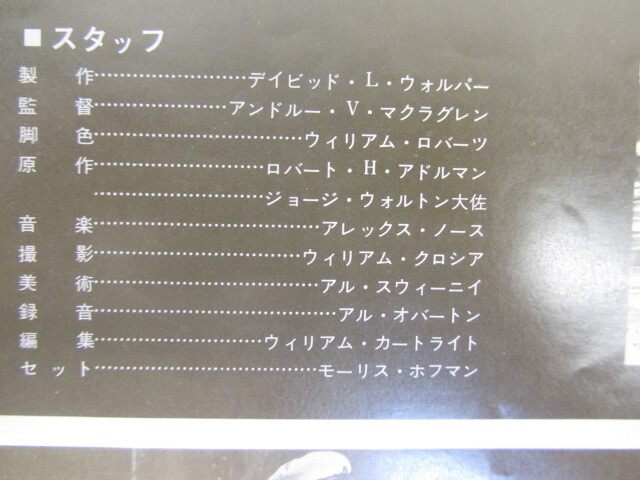 ■スタッフ
製作……………………デイビッド・L・ウォルパー
監督…………………アンドルー・V・マクラグレン
脚色……………………………ウィリアム・ロバーツ
原作………………………ロバート・H・アドルマン
………………………ジョージ・ウォルトン大佐
音楽………………………………アレックス・ノース
撮影……………………………ウィリアム・クロシア
美術………………………………アル・スウィーニイ
録音…………………………………アル・オバートン
編集………………………ウィリアム・カートライト
セット………………………………モーリス・ホフマン